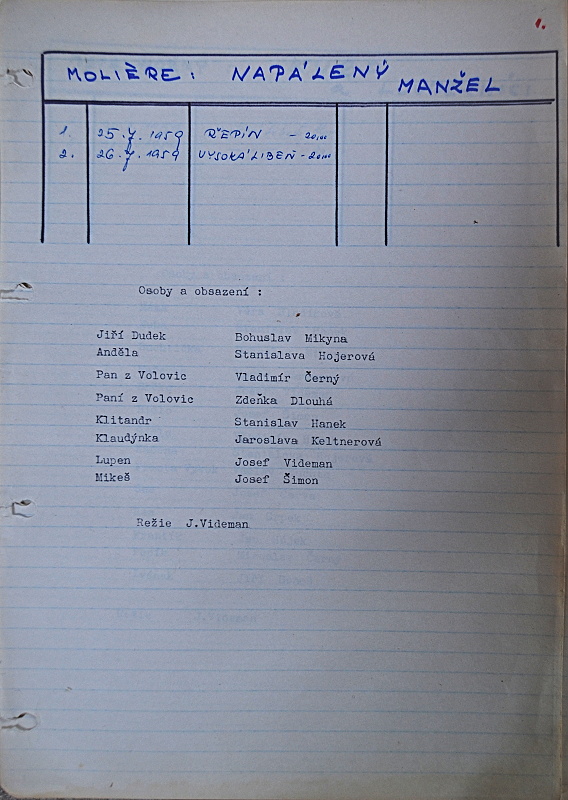 1.
MOLIÈRE: NAPÁLENÝ MANŽEL
1. 25.7.1959 ŘEPÍN - 20,00
2. 26.7.1959 VYSOKÁ LIBEŇ - 20,00
Osoby a obsazení :
Jiří Dudek Bohuslav Mikyna
Anděla Stanislava Hojerová
Pan z Volovic Vladimír Černý
Paní z Volovic Zdeňka Dlouhá
Klitandr Stanislav Hanek
Klaudýnka Jaroslava Keltnerová
Lupen Josef Videman
Mikeš Josef Šimon
Režie J.Videman